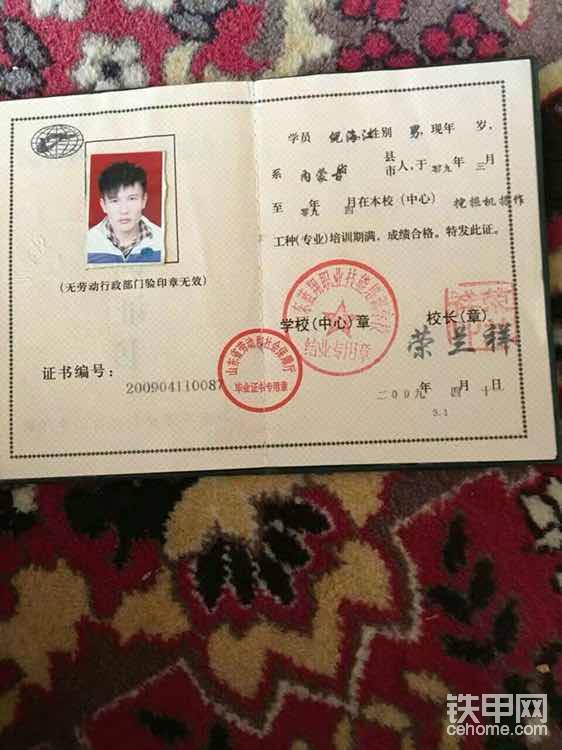 (无劳动行政部门验印章无效)
证书编号：
200904110087
山东省劳动和社会保障厅
毕业证书专用章
学员 海 性别 男，现年 岁，
系 内蒙古 省 县
市人，于 零九 年 三 月
至 零九 年 四 月在本校（中心） 挖掘机操作
工种(专业)培训期满，成绩合格。特发此证。
学校(中心)章
校长(章)
荣兰祥
二00九 年 四 月 十 日
3.1
铁甲网
cehome.com